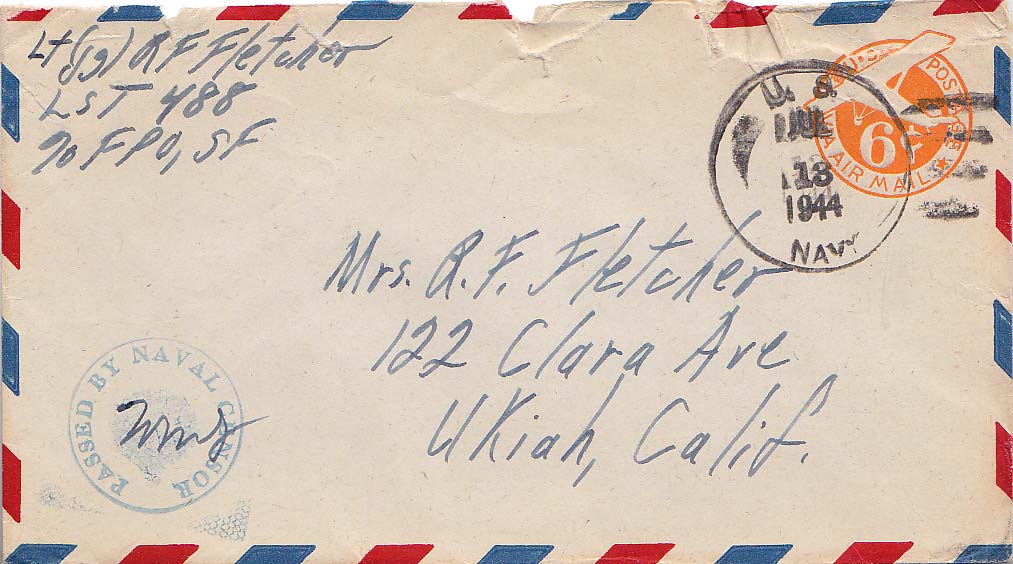 Lt(jg) R F Fletcher
LST 488
℅ FPO, SF
U. S.
JUL
13
1944
NAVY
U.S. POSTAGE
6¢
VIA AIR MAIL
Mrs. R. F. Fletcher
122 Clara Ave
Ukiah, Calif.
PASSED BY NAVAL CENSOR